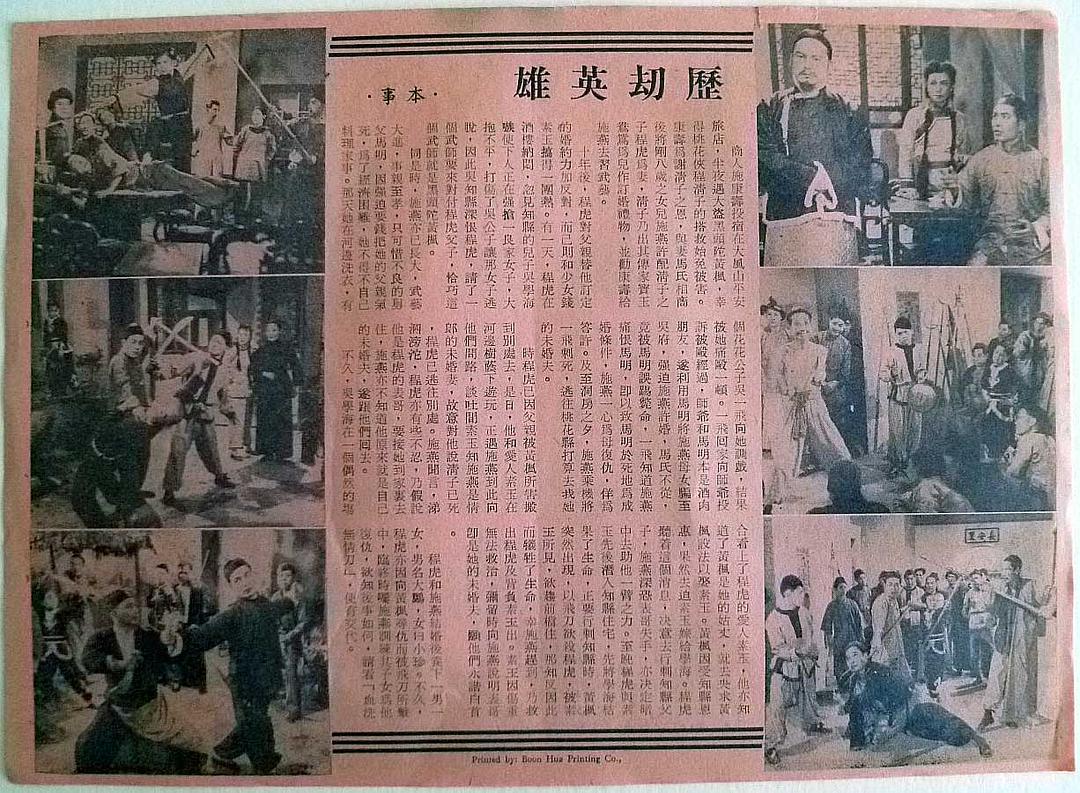 歷劫英雄
·本事·
商人施康壽投宿在大風山平安
旅店,半夜遇大盜黑頭陀黃楓,幸
得桃花俠程清子的搭救始免被害。
康壽爲謝清子之恩,與妻馬氏相商
後將剛八歲之女兒施燕許配清子之
子程虎爲妻,清子乃出其傳家寶玉
鴛鴦爲兒作訂婚禮物,並勸康壽給
施燕去習武藝。
十年後,程虎對父親替他訂定
的婚約力加反對,而己則和少女錢
素玉攪得一團熱。有一天,程虎在
酒樓納悶,忽見知縣的兒子吳學海
使下人正在强搶一良家女子,大
抱不平,打傷了吳公子讓那女子逃
脫,因此吳知縣深恨程虎,請了一
個武師要來對付程虎父子,恰巧這
個武師就是黑頭陀黃楓。
同是時,施燕亦已長大,武藝
大進,事親至孝,只可惜不良的舅
父馬明,因强迫要錢把她的父親氣
死,爲了經濟困難,她不得不自己
料理家事。那天她在河邊洗衣,有
個花花公子吳一飛向她調戲,結果
被她痛毆一頓。一飛回家向師爺投
訴被毆經過,師爺和馬明本是酒肉
朋友,遂利用馬明將施燕母女騙至
吳府,强迫施燕許婚,馬氏不從,
竟被馬明誤踢斃命,一飛知道施燕
痛恨馬明,卽以致馬明於死地爲成
婚條件,施燕一心爲母復仇,佯爲
答許。及至洞房之夕,施燕乘機將
一飛刺死,逃往桃花縣打算去找她
的未婚夫。
時程虎已因父親被黃楓所害搬
到別處去,是日,他和愛人素玉在
河邊樹蔭下遊玩,正遇施燕到此向
他們問路,談吐間素玉知施燕是情
郎的未婚妻,故意對他說清子已死
,程虎已逃往別處。施燕聞言,涕
泗滂沱,程虎亦有些不忍,乃假說
他是程虎的表哥,要接她到家裏去
住,施燕亦不知道他原來就是自己
的未婚夫,遂跟他們回去。
不久,吳學海在一個偶然的塲
合看了程虎的愛人素玉,他亦知
道了黃楓是她的姑丈,就去央求黃
楓設法以娶素玉。黃楓因受知縣恩
惠,果然去迫素玉嫁給學海。程虎
聽着這個消息,決意去行刺知縣父
子,施燕深恐表哥失手,亦決定暗
中去助他一臂之力。至晚程虎與素
玉先後潛入知縣住宅,先將學海結
果了生命,正要行刺知縣時,黃楓
突然出現,以飛刀欲殺程虎,被素
玉所見,欲趨前攔住,那知反因此
而犧牲了生命,幸施燕趕到,乃救
出程虎及背負素玉出。素玉因傷重
無法救治,彌留時向施燕說明表哥
卽是她的未婚夫,願他們永諧白首
。
程虎和施燕結婚後養下一男一
女,男名大鵬,女曰小珍。不久,
程虎亦因向黃楓尋仇而被飛刀所擊
中,臨終時囑施燕訓練其子女爲他
復仇,欲知後事如何,請看「血洗
無情刀」,便有交代。
長安里
Printed by: Boon Hua Printing Co.,